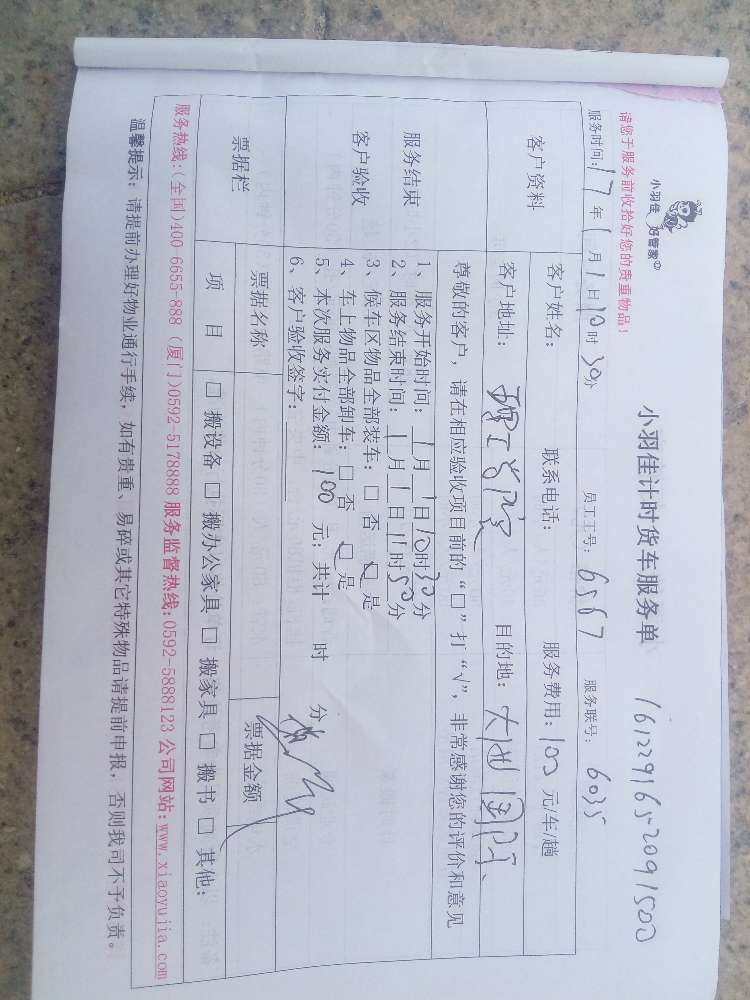 小羽佳 好管家
小羽佳计时货车服务单 161229165209 1500
请您于服务前收拾好您的贵重物品!
服务时间: 17 年 1 月 1 日 10 时 30 分 员工工号: 6567 服务联号: 6035
客户资料
客户姓名: 联系电话: 服务费用: 100 元/车/趟
客户地址: 目的地:
服务结束
客户验收
尊敬的客户,请在相应验收项目前的“□”打“√”,非常感谢您的评价和意见
1、服务开始时间: 1 月 1 日 10 时 30 分
2、服务结束时间: 1 月 1 日 11 时 50 分
3、候车区物品全部装车: □ 否 □ 是
4、车上物品全部卸车: □ 否 □ 是
5、本次服务实付金额: 100 元; 共计 时 分
6、客户验收签字:
票据栏
票据名称 票据金额
项 目 □ 搬设备 □ 搬办公家具 □ 搬家具 □ 搬书 □ 其他:
服务热线:(全国)400 6655-888 (厦门)0592-5178888 服务监督热线:0592-5888123 公司网站:www.xiaoyujia.com
温馨提示: 请提前办理好物业通行手续, 如有贵重、易碎或其它特殊物品请提前申报, 否则我司不予负责。